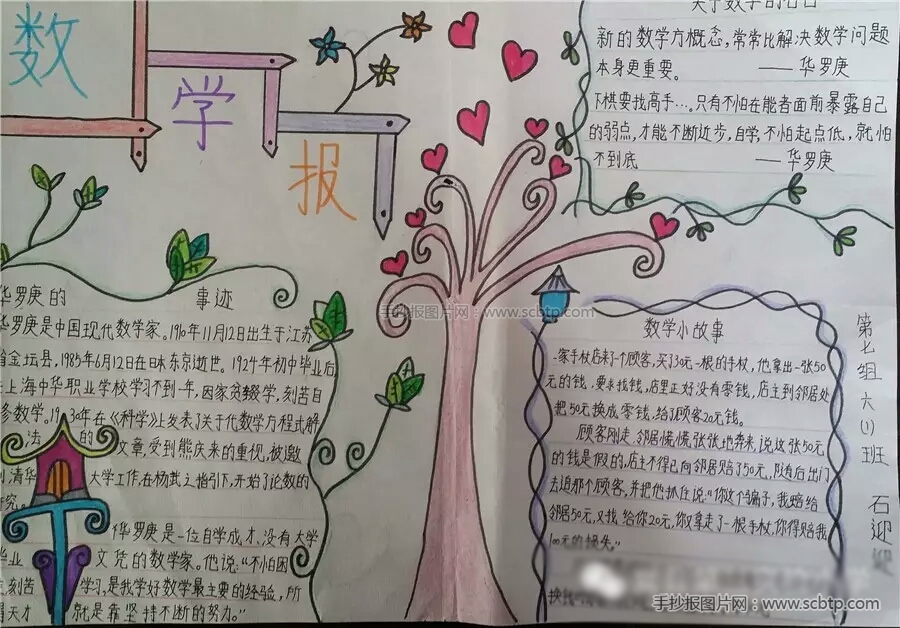 数
学
报
新的数学方概念,常常比解决数学问题
本身更重要。 ——华罗庚
下棋要找高手…。只有不怕在能者面前暴露自己
的弱点,才能不断进步,自学,不怕起点低,就怕
不到底 ——华罗庚
华罗庚的 事迹
华罗庚是中国现代数学家。1910年11月12日出生于江苏
省金坛县,1985年6月12日在日本东京逝世。1924年初中毕业后
上海中华职业学校学习不到一年,因家贫辍学,刻苦自
修数学。1930年在《科学》上发表了关于代数学方程式解
法 的 文章,受到熊庆来的重视,被邀
清华 大学工作,在杨武之指引下,开始了论数的
研究。
华罗庚是一位自学成才,没有大学
毕业 文凭的数学家。他说:“不怕困
刻苦 学习,是我学好数学最主要的经验,所
天才 就是靠坚持不断的努力。”
手抄报图片网:www.scbtp.com
数学小故事
一家手杖店来了个顾客,买了30元一根的手杖,他拿出一张50
元的钱,要求找钱,店里正好没有零钱,店主到邻居处
把50元换成零钱,给了顾客20元钱。
顾客刚走,邻居慌慌张张地奔来,说这张50元
的钱是假的,店主不得已向邻居赔了50元,随后出门
去追那个顾客,并把他抓住说:“你这个骗子,我赔给
邻居50元,又找给你20元,你又拿走了一根手杖,你得赔我
100元的损失。”
第七组六(1)班 石迎迎
手抄报图片网:www.scbtp.com